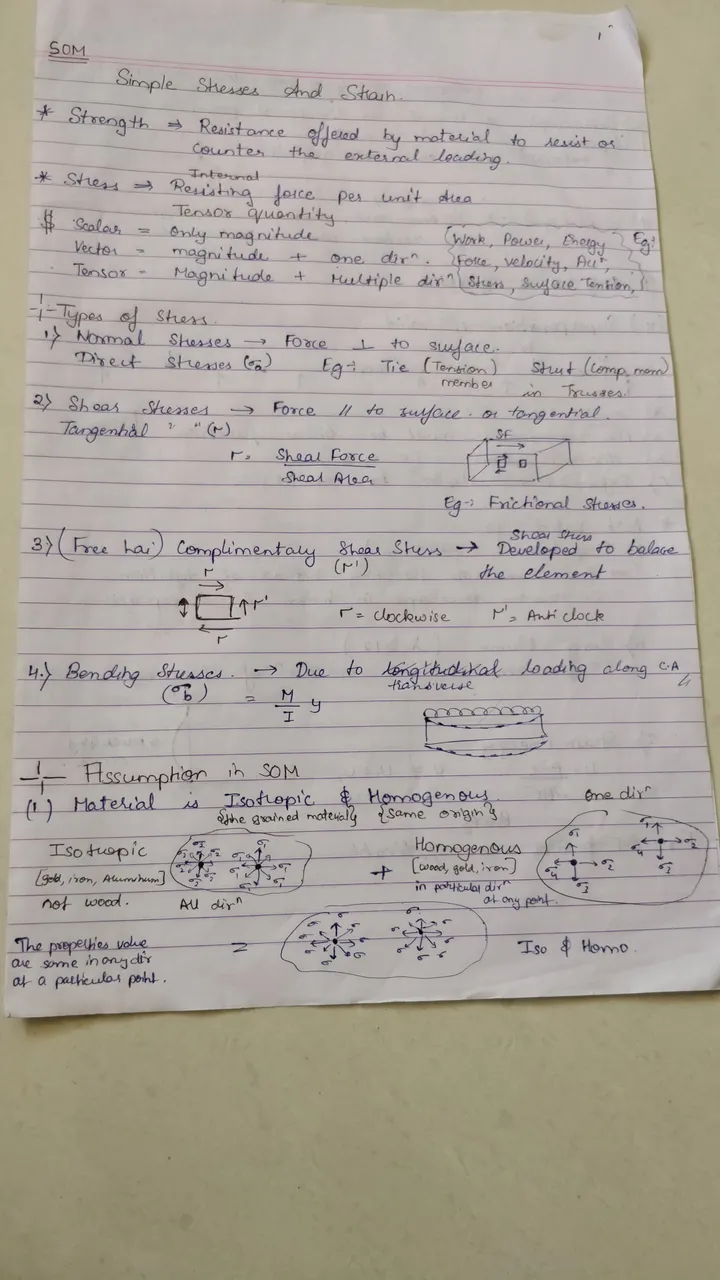 SOM
Simple Stresses And Strain.
* Strength ⇒ Resistance offered by material to resist or
counter the external loading.
* Stress ⇒ Internal Resisting force per unit area
Tensor quantity
$ Scalar = Only magnitude {Work, Power, Energy} Eg:
Vector = magnitude + one dirⁿ. {Force, velocity, Accⁿ,
Tensor - Magnitude + Multiple dirⁿ {Stress, Surface Tension,}
Types of Stress.
1.) Normal Stresses → Force ⊥ to surface.
Direct Stresses Eg-: Tie (Tension) member Strut (comp. mem)
in Trusses.
2) Shear Stresses → Force // to surface. or tangential.
Tangential " " (τ)
τ = Shear Force
Shear Area
SF
Eg-: Frictional Stresses.
3.) (Free hai) Complimentary Shear Stress → Shear Stress Developed to balace
(τ') the element
τ
τ'
τ
τ = clockwise τ' = Anti clock
4.) Bending Stresses. → Due to transverse loading along C.A
(σb) = M/I y
Assumption in SOM
(1) Material is Isotropic & Homogenous
{fine grained material} {Same origin}
one dirⁿ
Isotropic
[gold, iron, Aluminum]
not wood.
All dirⁿ
+
Homogenous
[wood, gold, iron]
in particular dirⁿ
at any point.
The properties value
are same in any dir
at a particular point.
=
Iso & Homo.